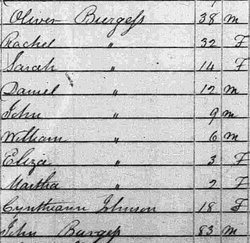 Oliver Burgess 38 m
Rachel " 32 F
Sarah " 14 F
Daniel " 12 m
John " 9 m
William " 6 m
Eliza " 3 F
Martha " 2 F
Cyntheann Johnson 18 F
John Burgess 83 m